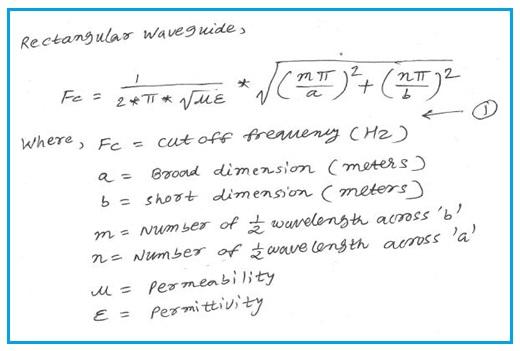 Rectangular Waveguide,
Fc = 1 / (2 * π * √με) * √((mπ/a)² + (nπ/b)²)
← ①
Where, Fc = cut off frequency (Hz)
a = Broad dimension (meters)
b = short dimension (meters)
m = Number of 1/2 wavelength across 'b'
n = Number of 1/2 wavelength across 'a'
μ = Permeability
ε = Permittivity